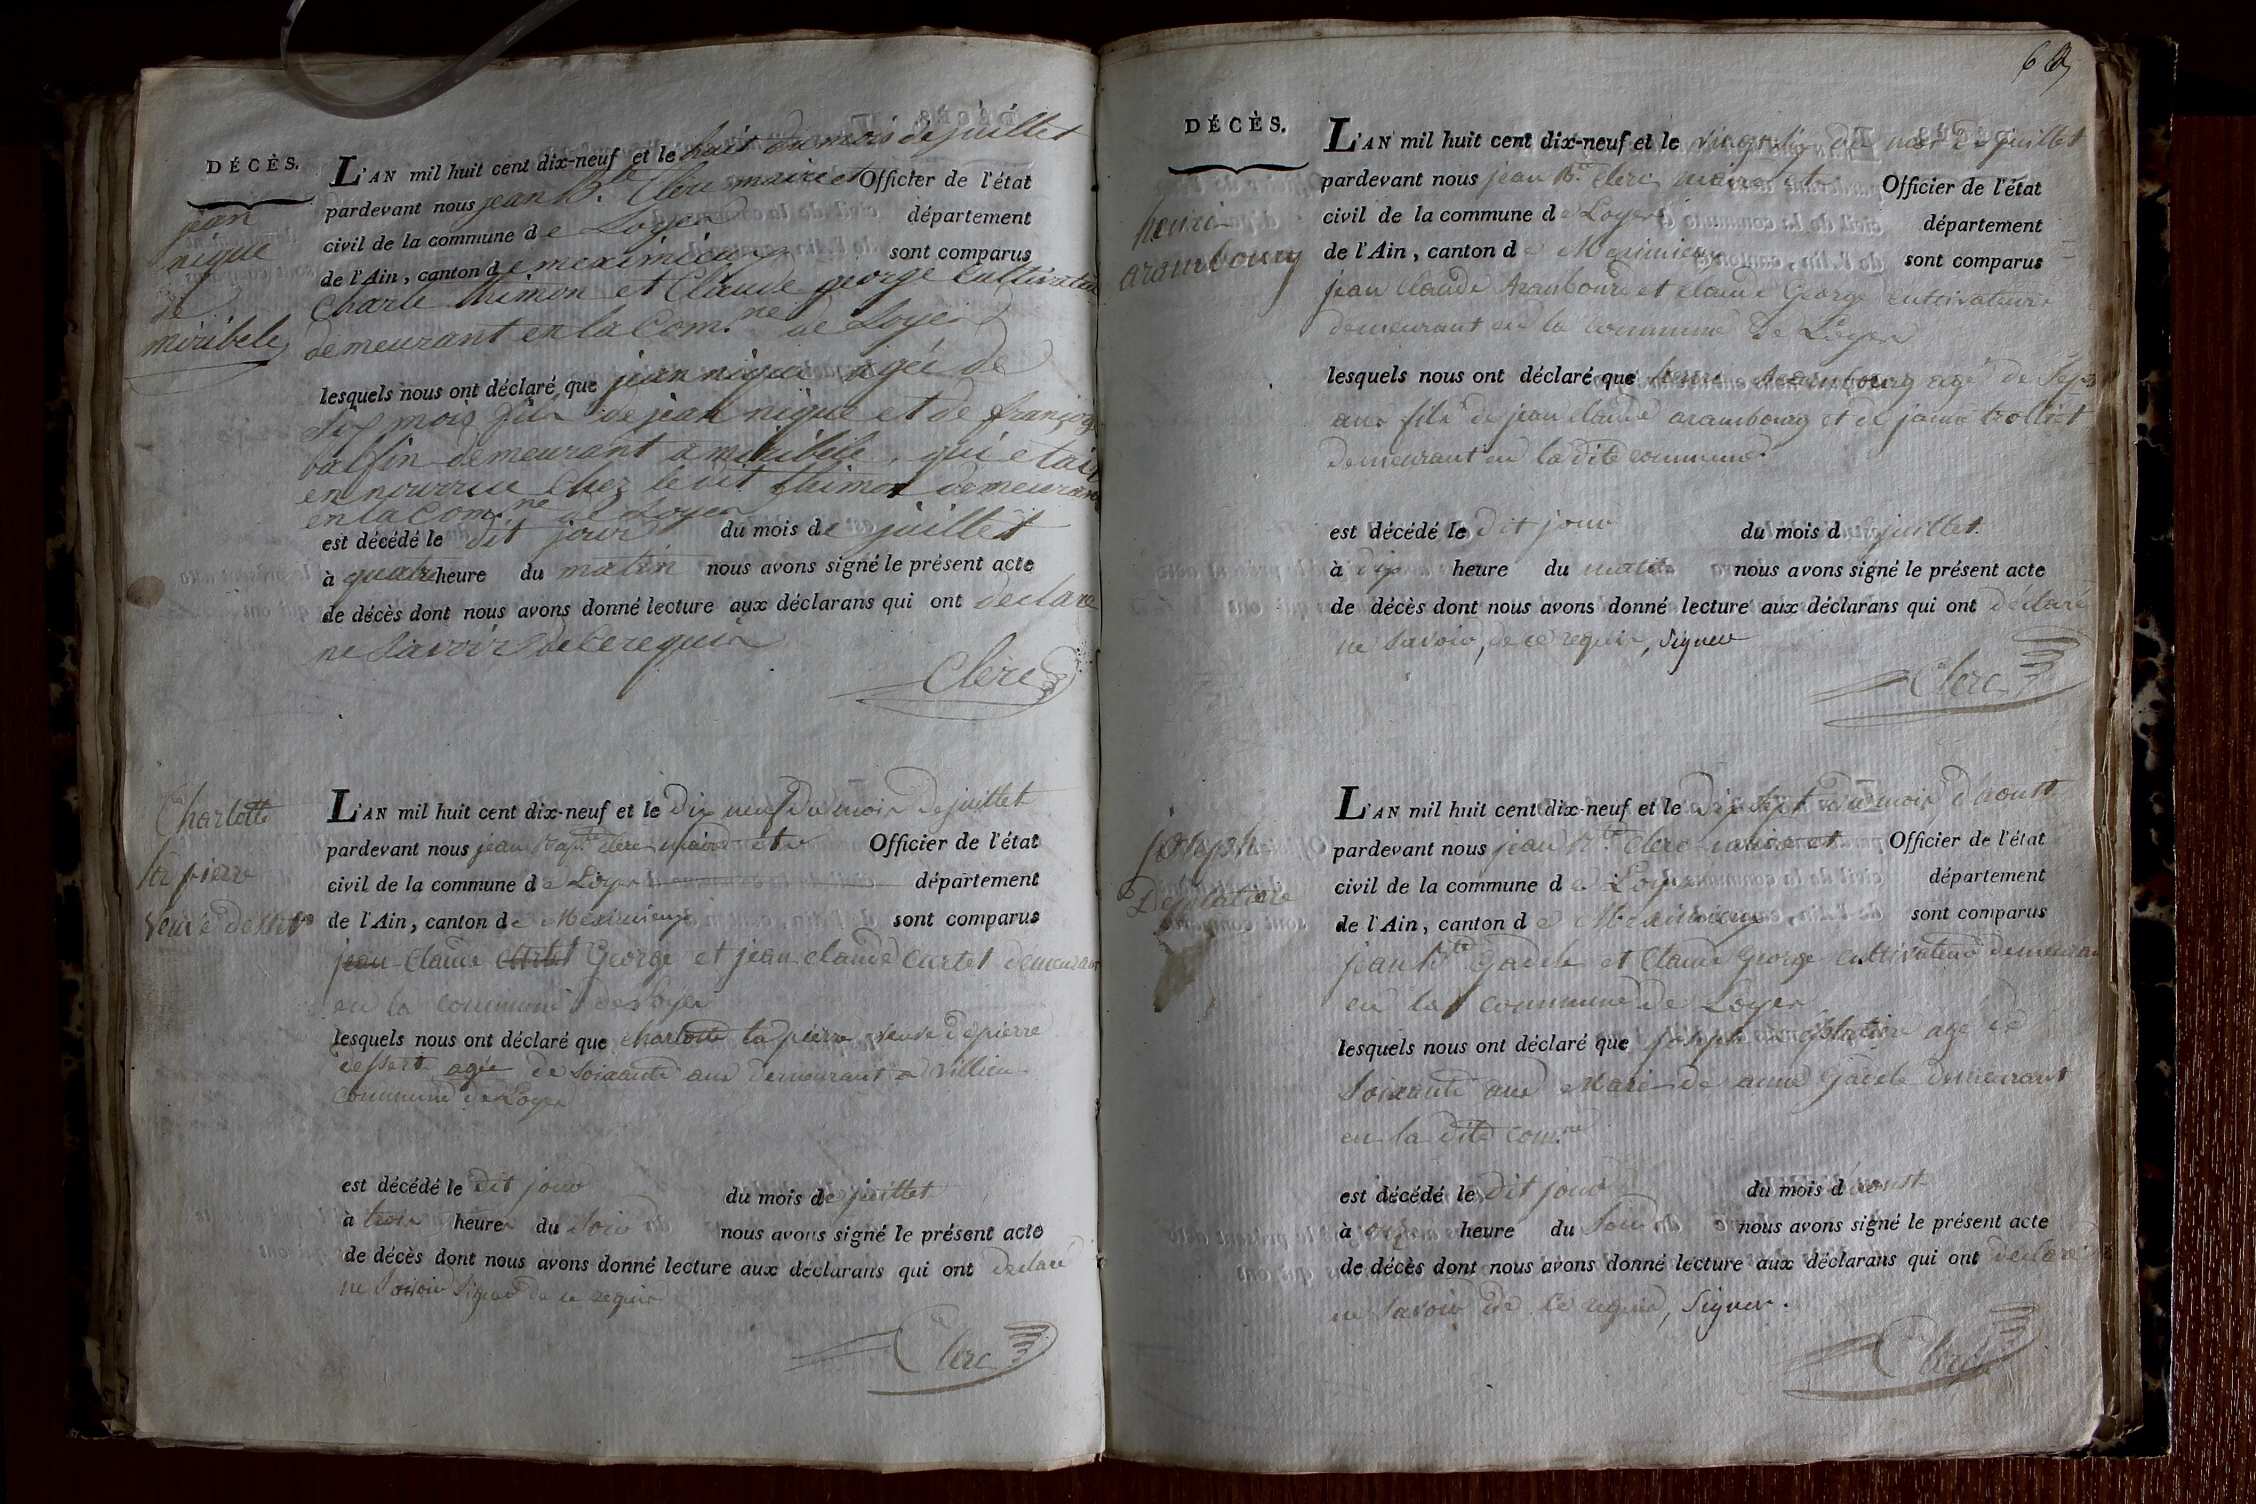 DÉCÈS.
jean
nique
de
miribele
L'AN mil huit cent dix-neuf et le huit du mois de juillet
pardevant nous jean B.te Clerc maire et Officier de l'état
civil de la commune de Loyes département
de l'Ain, canton de meximieux sont comparus
Charle thimon et Claude george Cultivateur
demeurant en la Com.ne de Loyes
lesquels nous ont déclaré que jean nique agée de
Six mois fils de jean nique et de françoise
balfin demeurant a miribele, qui etait
en nourrice chez ledit thimon demeurant
en la Com.ne de Loyes
est décédé le dit jour du mois de juillet
à quatre heure du matin nous avons signé le présent acte
de décès dont nous avons donné lecture aux déclarans qui ont declaré
ne Savoir de ce requis
Clerc
Charlotte
lapierre
veuve dessert
L'AN mil huit cent dix-neuf et le dix neuf du mois de juillet
pardevant nous jean Bapt. Clerc maire et Officier de l'état
civil de la commune de Loyes département
de l'Ain, canton de Meximieux sont comparus
jean Claude Curtet George et jean claude Curtet demeurant
en la commune de Loyes
lesquels nous ont déclaré que charlotte lapierre veuve de pierre
dessert agée de soixante ans demeurant a Villieu
commune de Loyes
est décédé le dit jour du mois de juillet
à trois heures du soir nous avons signé le présent acte
de décès dont nous avons donné lecture aux déclarans qui ont declaré
ne savoir signer de ce requis
Clerc
DÉCÈS.
henri
arambourg
L'AN mil huit cent dix-neuf et le vingt du mois de juillet
pardevant nous jean B.te Clerc maire et Officier de l'état
civil de la commune de Loyes département
de l'Ain, canton de Meximieux sont comparus
jean Claude Arambourg et claude George cultivateurs
demeurant en la commune de Loyes
lesquels nous ont déclaré que henri Arambourg agé de Sept
ans fils de jean claude arambourg et de janne trolliet
demeurant en la dite commune.
est décédé le dit jour du mois d juillet.
à dix heure du matin nous avons signé le présent acte
de décès dont nous avons donné lecture aux déclarans qui ont déclaré
ne savoir, de ce requis, signer
Clerc
joseph
Desplatiere
L'AN mil huit cent dix-neuf et le dix sept du mois d'aoust
pardevant nous jean B.te Clerc maire et Officier de l'état
civil de la commune de Loyes département
de l'Ain, canton de Meximieux sont comparus
jean B.te Gaacle et Claude George cultivateurs demeurant
en la commune de Loyes
lesquels nous ont déclaré que joseph desplatiere agé de
soixante ans Mari de anne Gaacle demeurant
en la dite com.ne
est décédé le dit jour du mois d'aoust
à onze heure du soir nous avons signé le présent acte
de décès dont nous avons donné lecture aux déclarans qui ont declaré
ne savoir de ce requis, signer.
Clerc